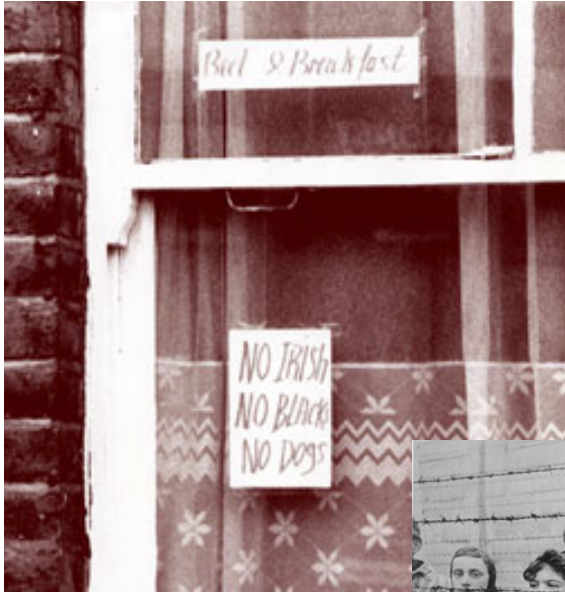 Bed & Breakfast
NO IRISH
NO BLACKS
NO DOGS